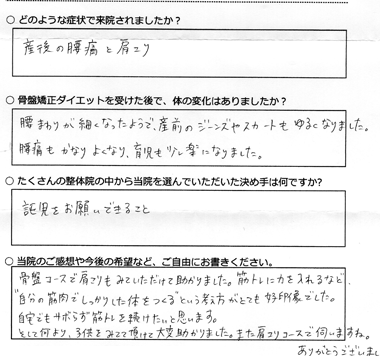 ○ どのような症状で来院されましたか?
産後の腰痛と肩こり
○ 骨盤矯正ダイエットを受けた後で、体の変化はありましたか?
腰まわりが細くなったようで、産前のジーンズやスカートもゆるくなりました。
腰痛もかなりよくなり、育児も少し楽になりました。
○ たくさんの整体院の中から当院を選んでいただいた決め手は何ですか?
託児をお願いできること
○ 当院のご感想や今後の希望など、ご自由にお書きください。
骨盤コースで肩こりもみていただけて助かりました。筋トレに力を入れるなど、
"自分の筋肉でしっかりした体をつくる"という考え方がとても好印象でした。
自宅でもサボらず筋トレを続けたいと思います。
そして何より、子供をみてて頂けて大変助かりました。また肩コリコースで伺いますね。
ありがとうございました